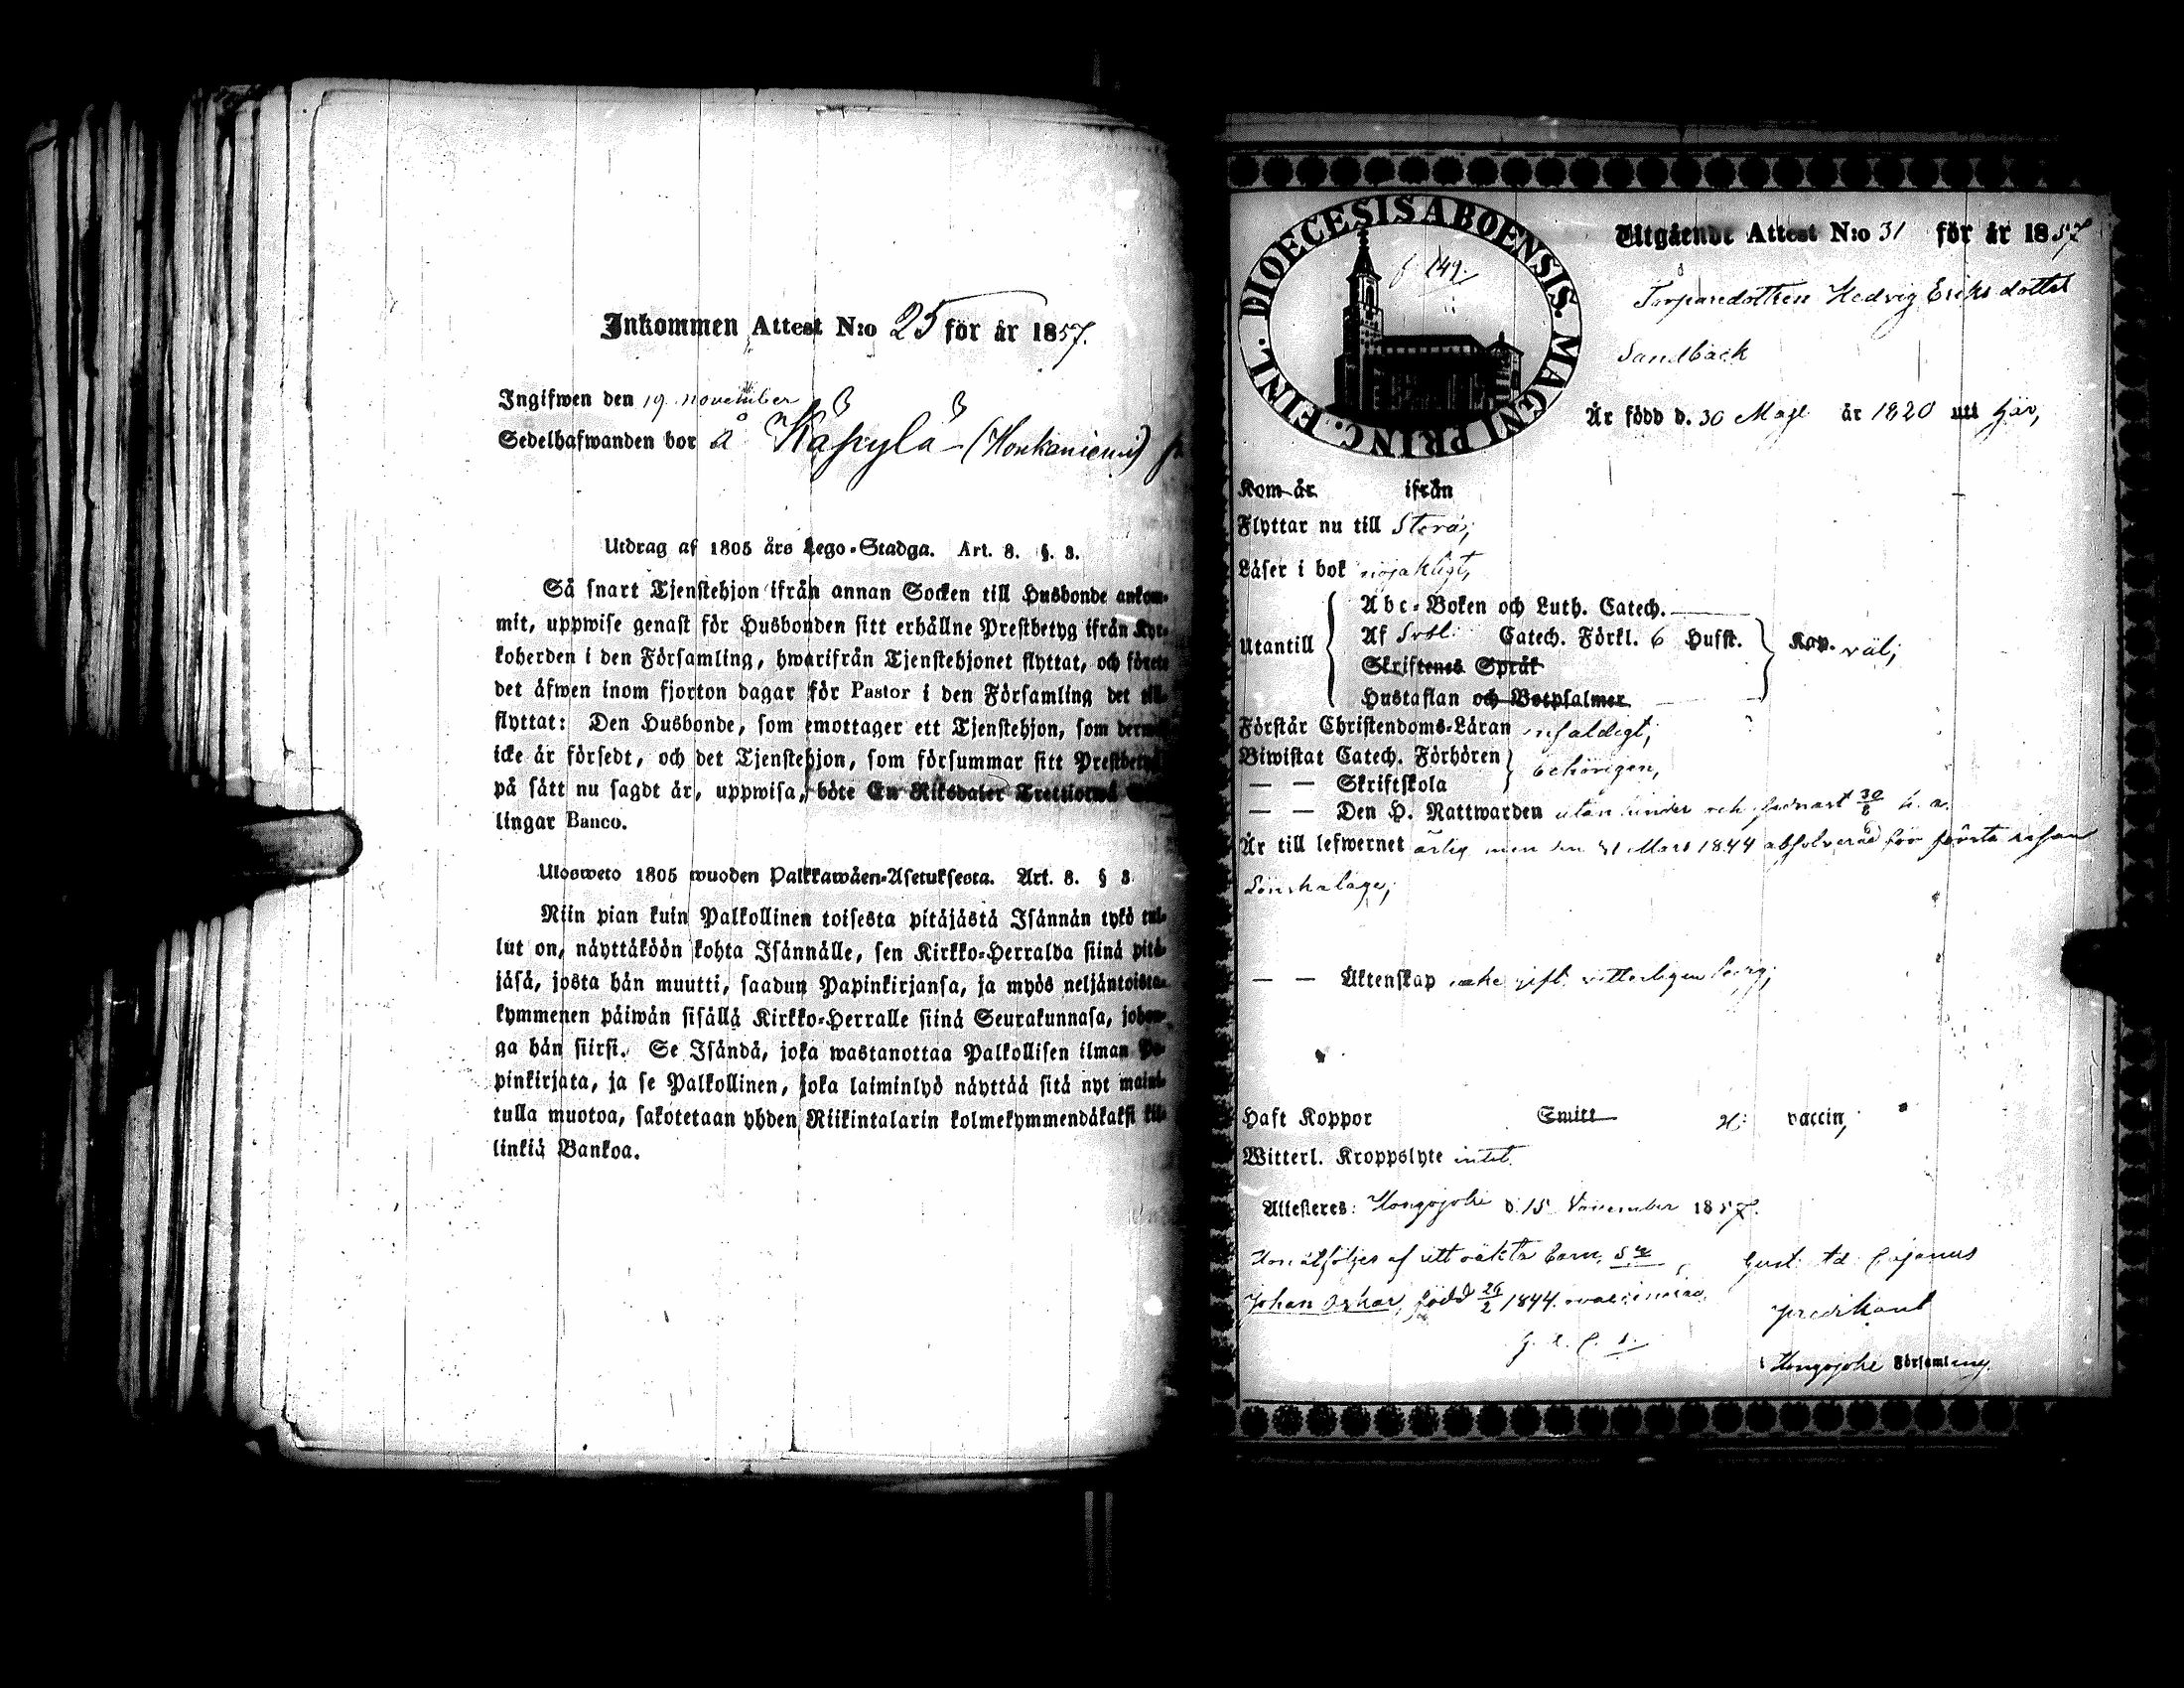 Inkommen Attest N:o 25 för år 1857.
Ingifwen den 19 november
Sedelhafwanden bor å Käpylä (Honkaniemi)
Utdrag af 1805 års Lego-Stadga. Art. 8. §. 8.
Så snart Tjenstehjon ifrån annan Socken till Husbonde ankom-
mit, uppwise genast för Husbonden sitt erhållne Prestbetyg ifrån Kyr-
koherden i den Församling, hwarifrån Tjenstehjonet flyttat, och förete
det äfwen inom fjorton dagar för Pastor i den Församling det till-
flyttat: Den Husbonde, som emottager ett Tjenstehjon, som dermed
icke är försedt, och det Tjenstehjon, som försummar sitt Prestbetyg
på sätt nu sagdt är, uppwisa, böte En Riksdaler Trettiotwå
lingar Banco.
Ulosweto 1805 wuoden Palkkawäen-Asetuksesta. Art. 8. § 8
Niin pian kuin Palkollinen toisesta pitäjästä Isännän tykö tul-
lut on, näyttäköön kohta Isännälle, sen Kirkko-Herralda siinä pitä-
jäsä, josta hän muutti, saadun Papinkirjansa, ja myös neljäntoista-
kymmenen päiwän sisällä Kirkko-Herralle siinä Seurakunnasa, johon-
ga hän siirsi. Se Isändä, joka wastanottaa Palkollisen ilman Pa-
pinkirjata, ja se Palkollinen, joka laiminlyö näyttää sitä nyt maini-
tulla muotoa, sakotetaan yhden Riikintalarin kolmekymmendäkaksi kil-
linkiä Bankoa.
DIOECESIS ABOENSIS. MAGNI PRINC. FINL.
f. 149.
Utgående Attest N:o 31 för år 1857
Torparedottren Hedvig Eriksdotter
Sandback
Är född d. 30 Maji år 1820 uti här,
Kom år ifrån
Flyttar nu till Storå;
Läser i bok nöjaktigt,
Utantill
Abc-Boken och Luth. Catech.
Af Svbl. Catech. Förkl. 6 Hufst.
Skriftenes Språk
Hustaflan och Botpsalmer
Kap. väl;
Förstår Christendoms-Läran enfaldigt;
Biwistat Catech. Förhören
— — Skriftskola
behörigen,
— — Den H. Nattwarden utan hinder och sednast 30/8 h. a.
Är till lefwernet ärlig men den 31 Mars 1844 absolverad för första resan
Lönskaläge;
— — Äktenskap icke gift vitterligen ledig;
Haft Koppor Smitt H: vaccin,
Witterl. Kroppslyte intet.
Attesteres: Kongojoki d. 15 November 1857.
Hon åtföljes af ett oäkta barn, Sn
Johan Oskar, född 26/2 1844. vaccinerad.
G. A. C.
Gust. Ad. Cajanus
predikant
i Kongojoki Församling